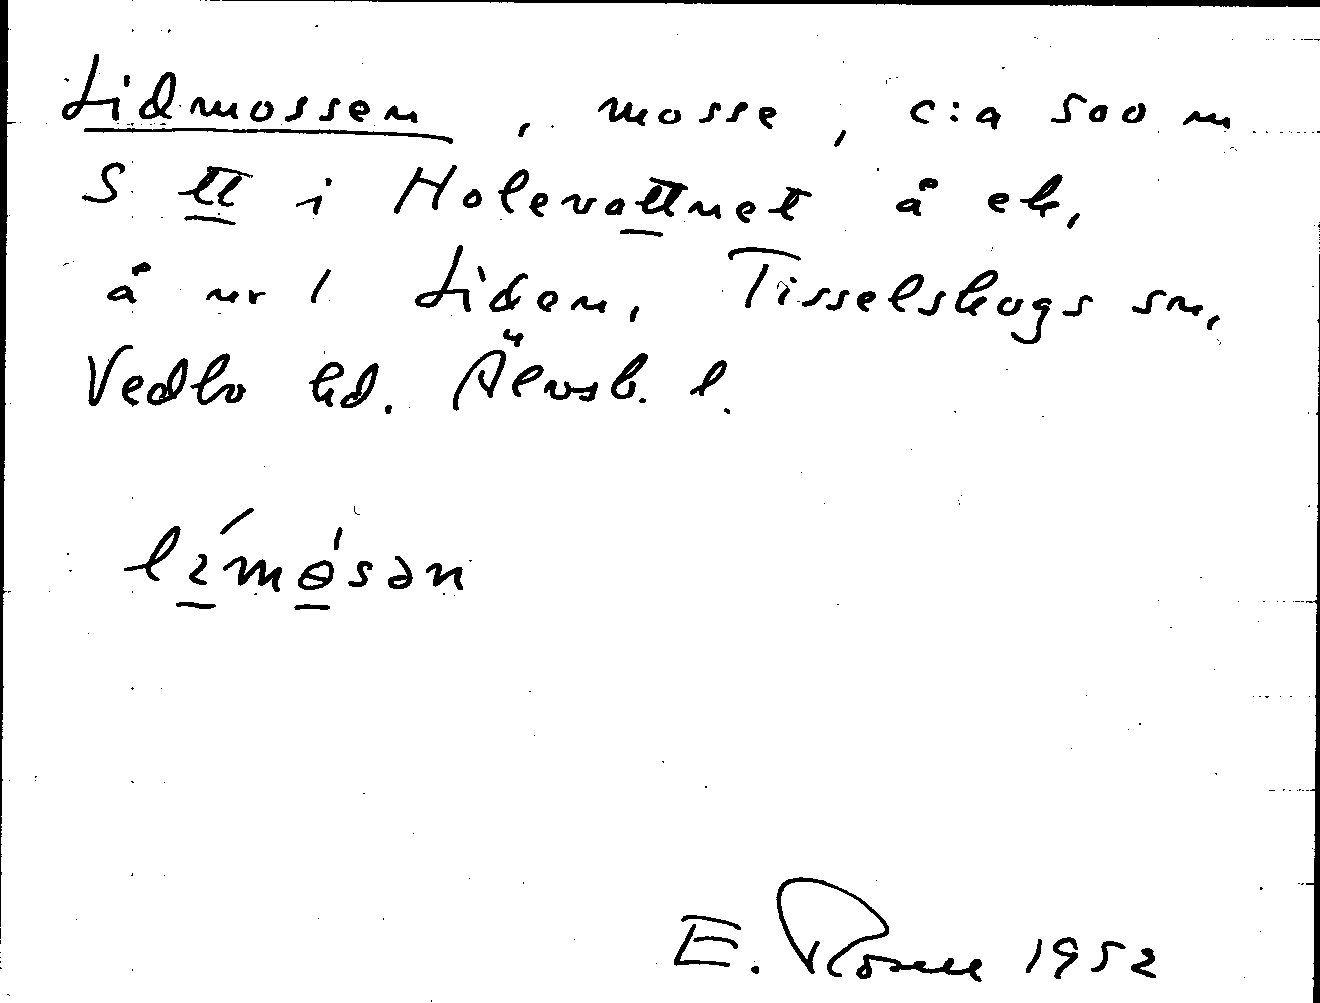 Lidmossen, mosse, c:a 500 m
S tt i Holevattnet å ek,
å nr 1 Liden, Tisselskogs sn,
Vedbo hd. Älvsb. l.
límɵ́sən
E. Rosell 1952